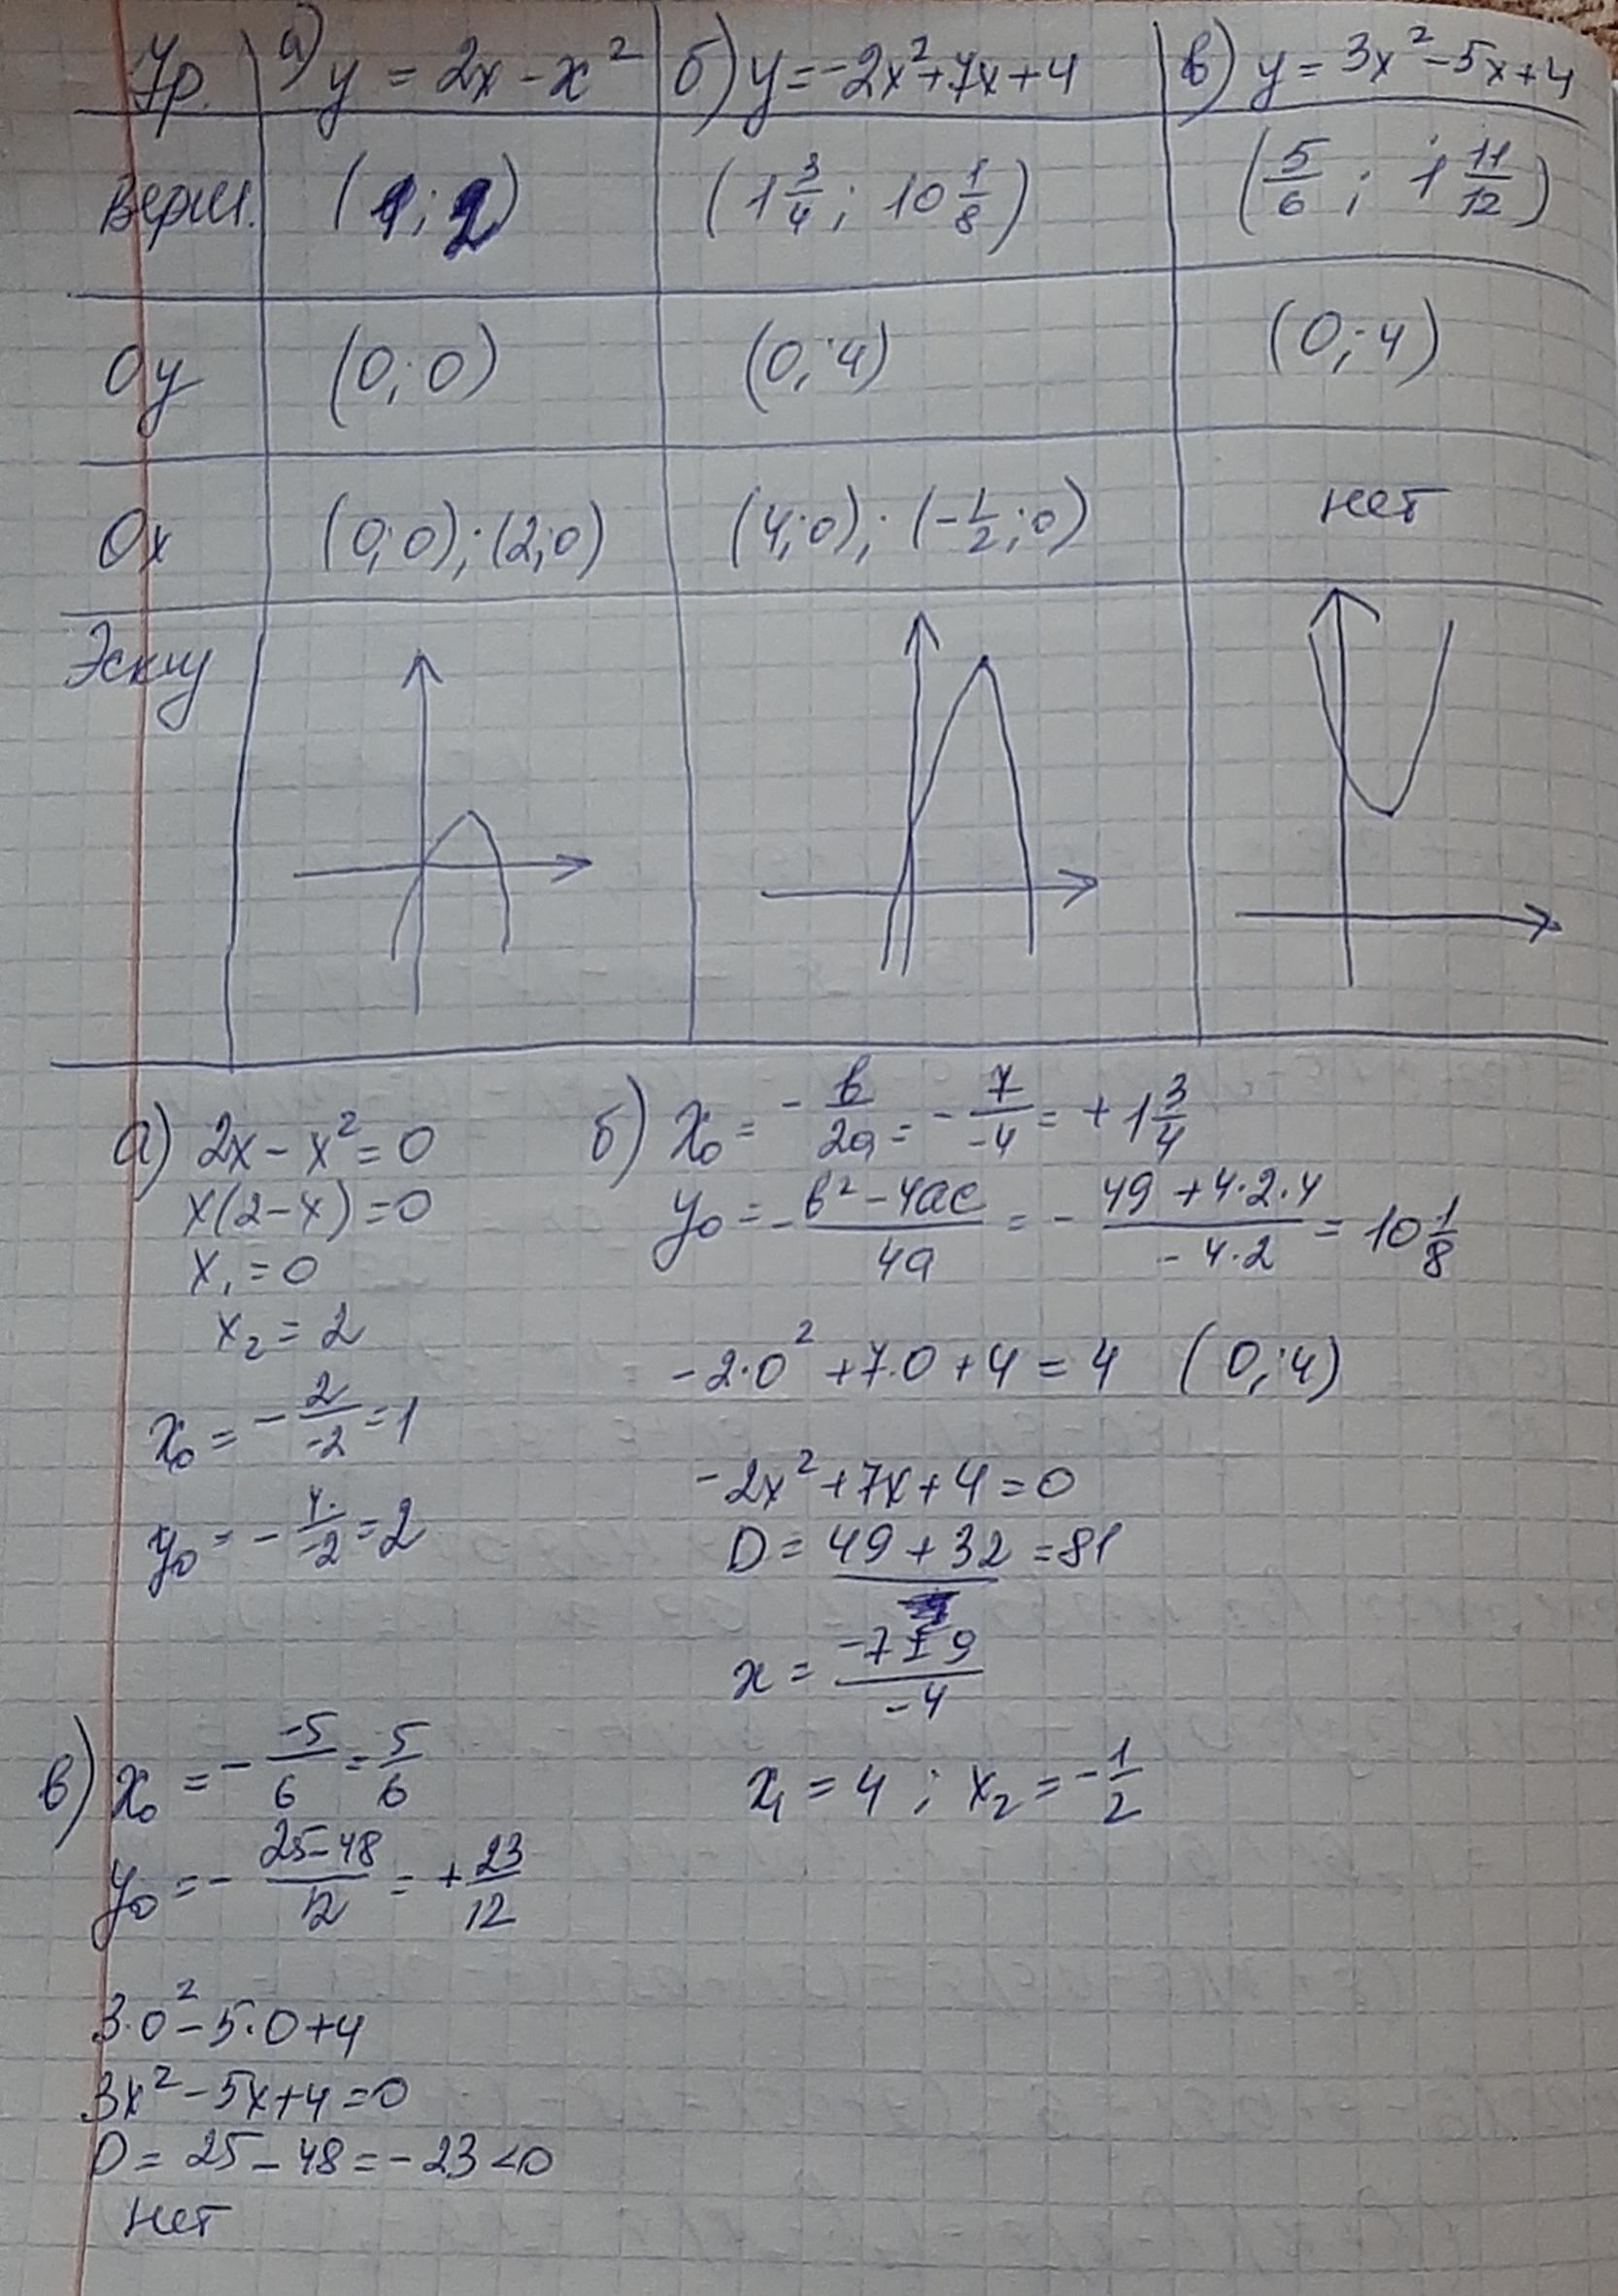 Ур. а) y = 2x - x² б) y = -2x² + 7x + 4 в) y = 3x² - 5x + 4
верш. (1; 2) (1 3/4; 10 1/8) (5/6; 1 11/12)
Oy (0; 0) (0; 4) (0; 4)
Ox (0; 0); (2; 0) (4; 0); (-1/2; 0) нет
Эскиз
а) 2x - x² = 0
x(2-x) = 0
x₁ = 0
x₂ = 2
x₀ = - 2/-2 = 1
y₀ = - 4/-2 = 2
б) x₀ = - b/2a = - 7/-4 = + 1 3/4
y₀ = - b² - 4ac/4a = - 49 + 4·2·4/-4·2 = 10 1/8
-2·0² + 7·0 + 4 = 4 (0; 4)
-2x² + 7x + 4 = 0
D = 49 + 32 = 81
x = -7 ± 9/-4
x₁ = 4; x₂ = -1/2
в) x₀ = - -5/6 = 5/6
y₀ = - 25-48/12 = + 23/12
3·0² - 5·0 + 4
3x² - 5x + 4 = 0
D = 25 - 48 = -23 < 0
Нет